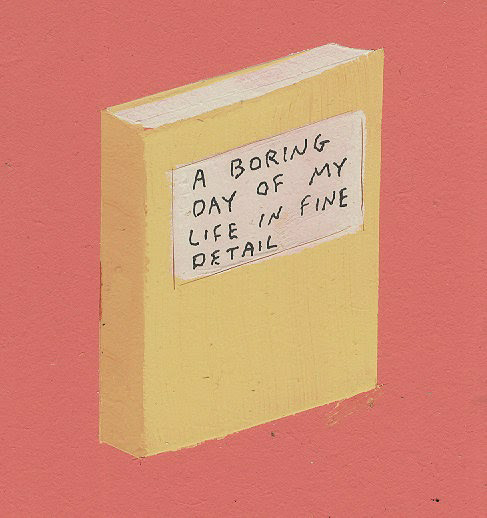 A BORING
DAY OF MY
LIFE IN FINE
DETAIL